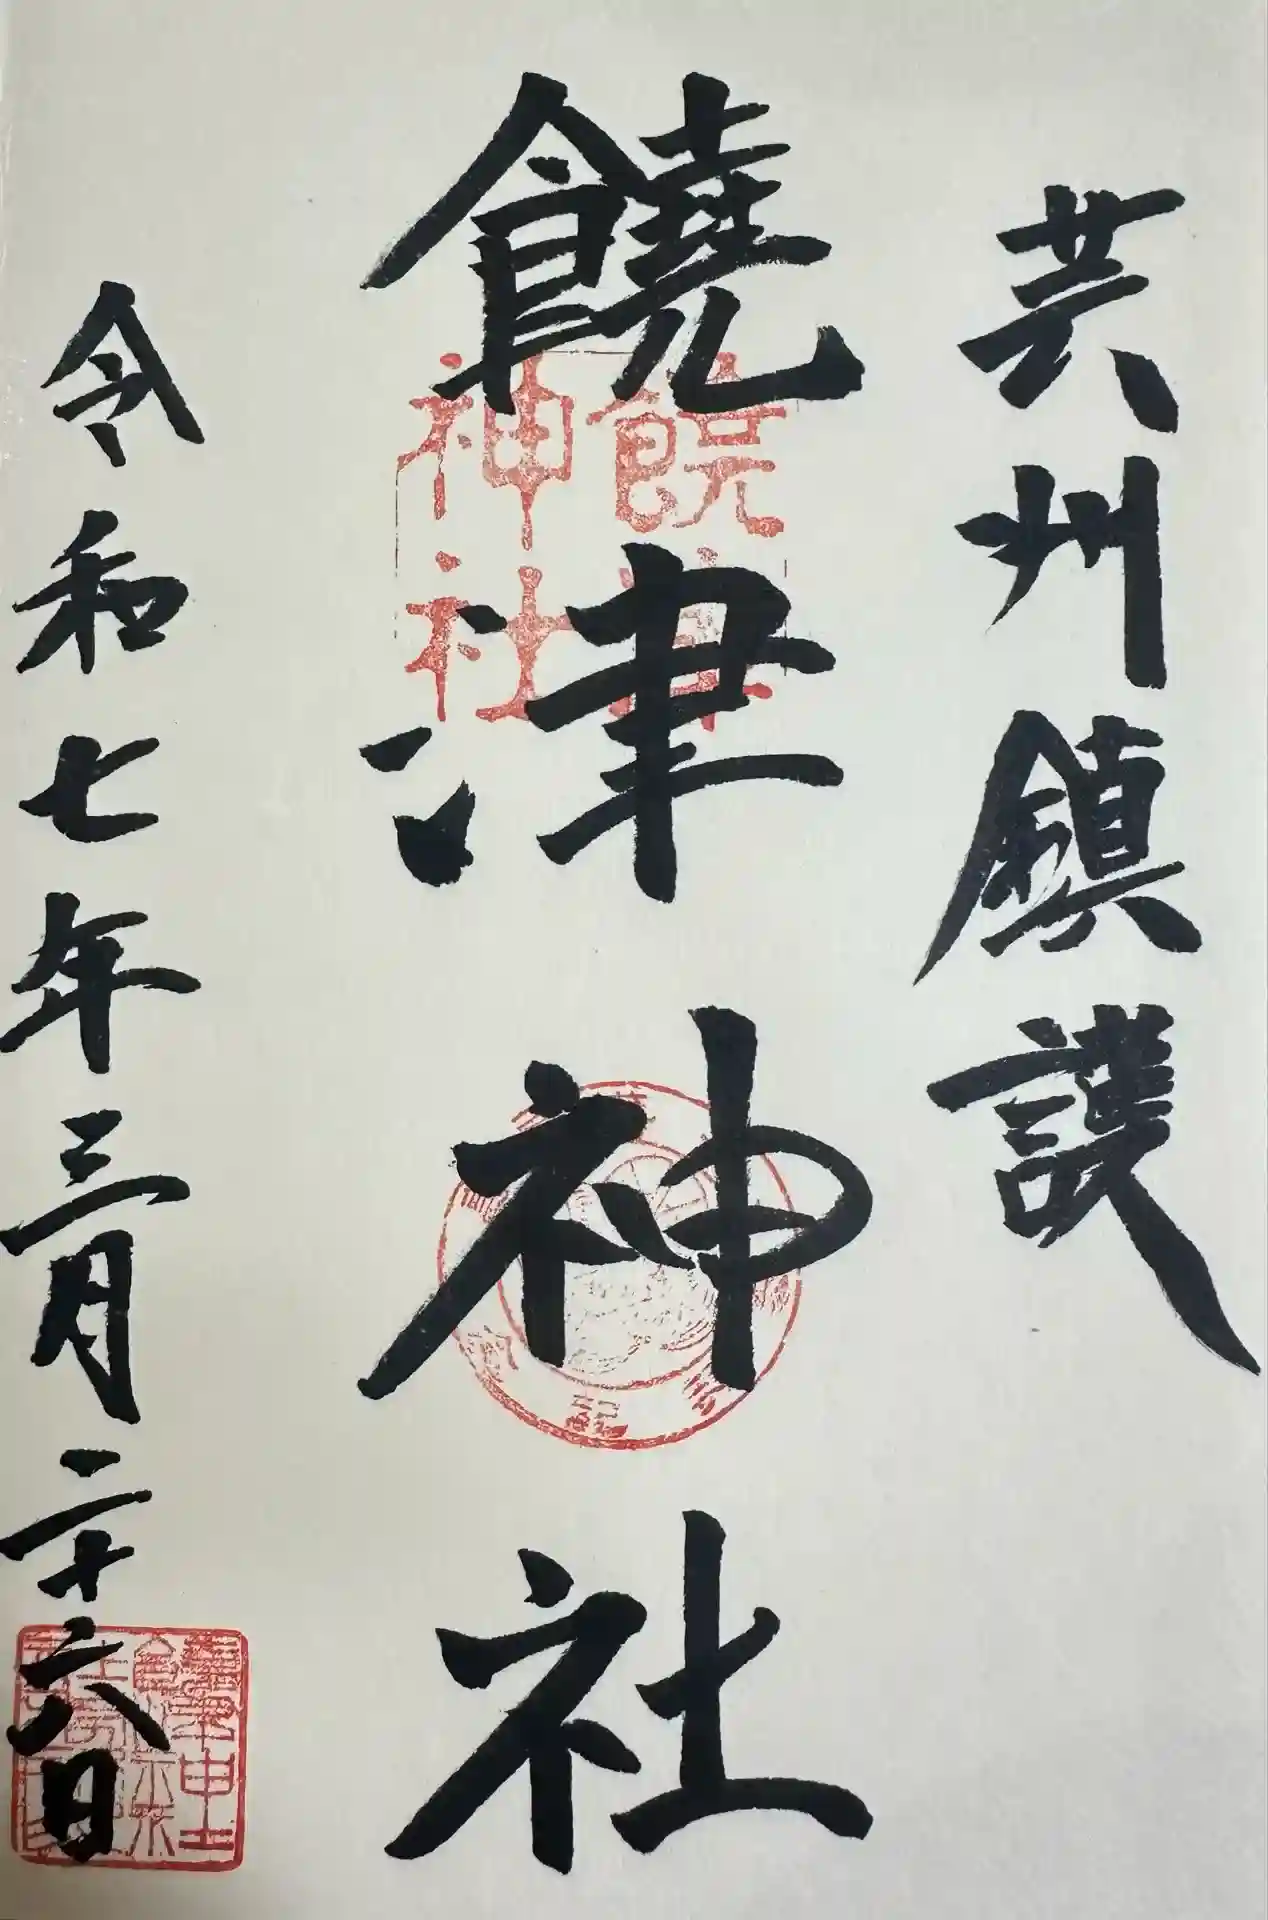 芸州鎮護
饒津神社
饒津
神社
令和七年三月二十六日